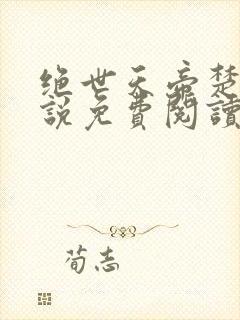 绝世天帝楚
說免費閱讀
荀志